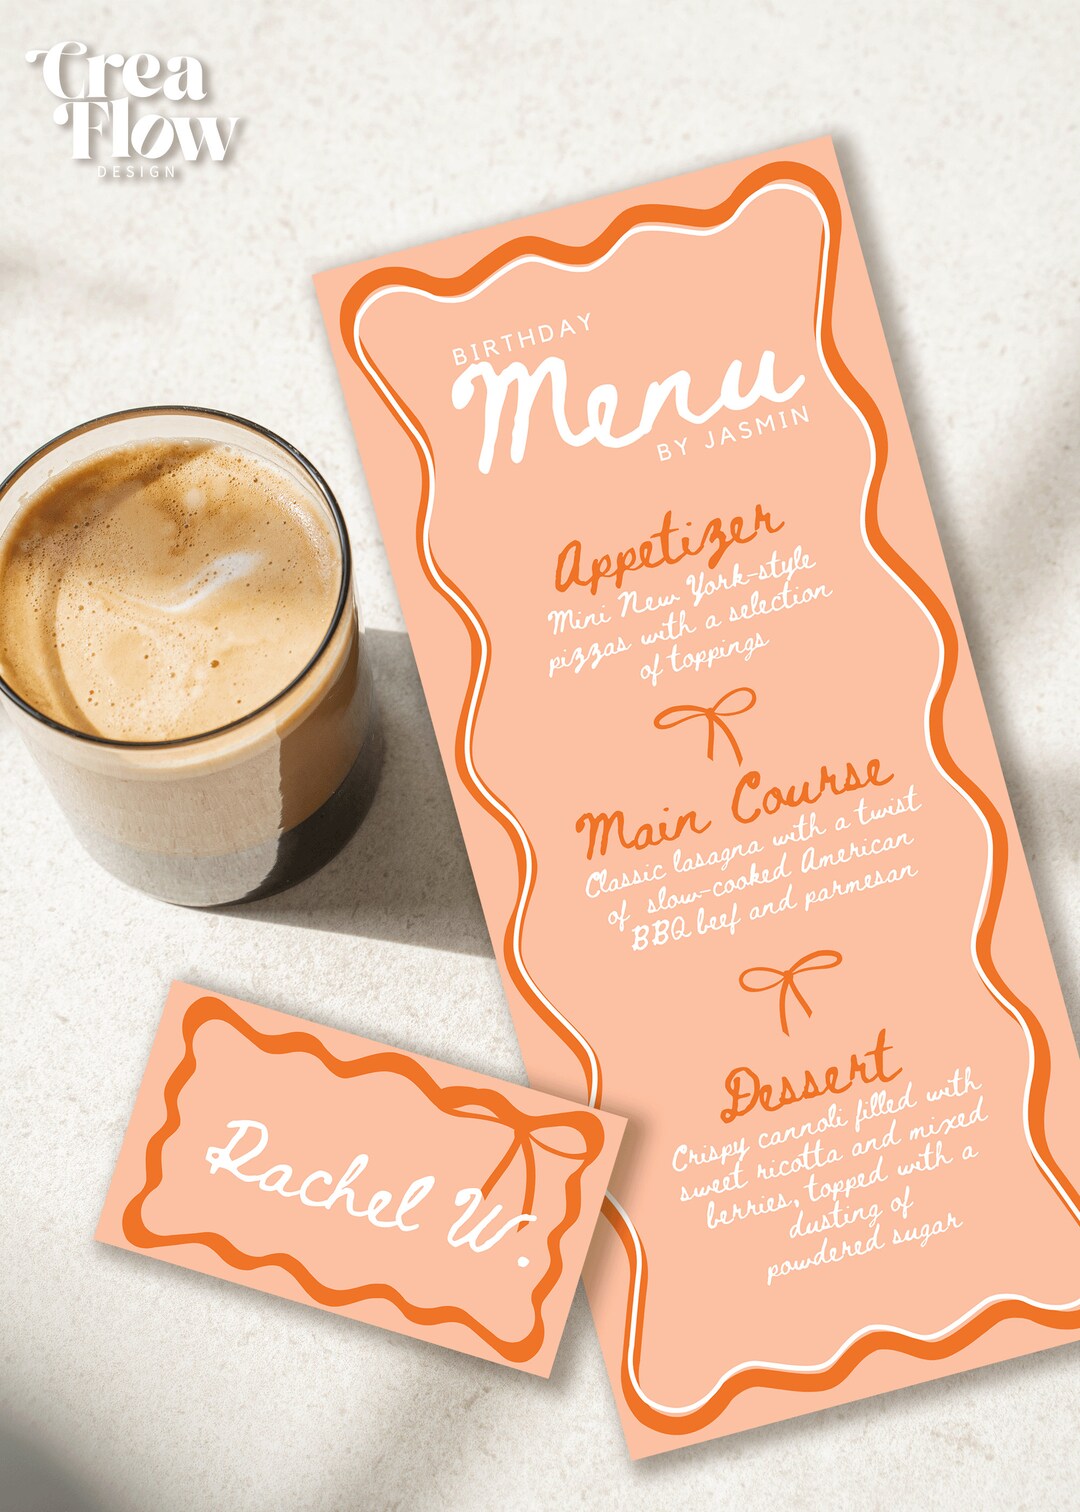 Crea
Flow
DESIGN
BIRTHDAY
Menu
BY JASMIN
Appetizer
Mini New York-style
pizzas with a selection
of toppings
Main Course
Classic lasagna with a twist
of slow-cooked American
BBQ beef and parmesan
Dessert
Crispy cannoli filled with
sweet ricotta and mixed
berries, topped with a
dusting of
powdered sugar
Rachel W.